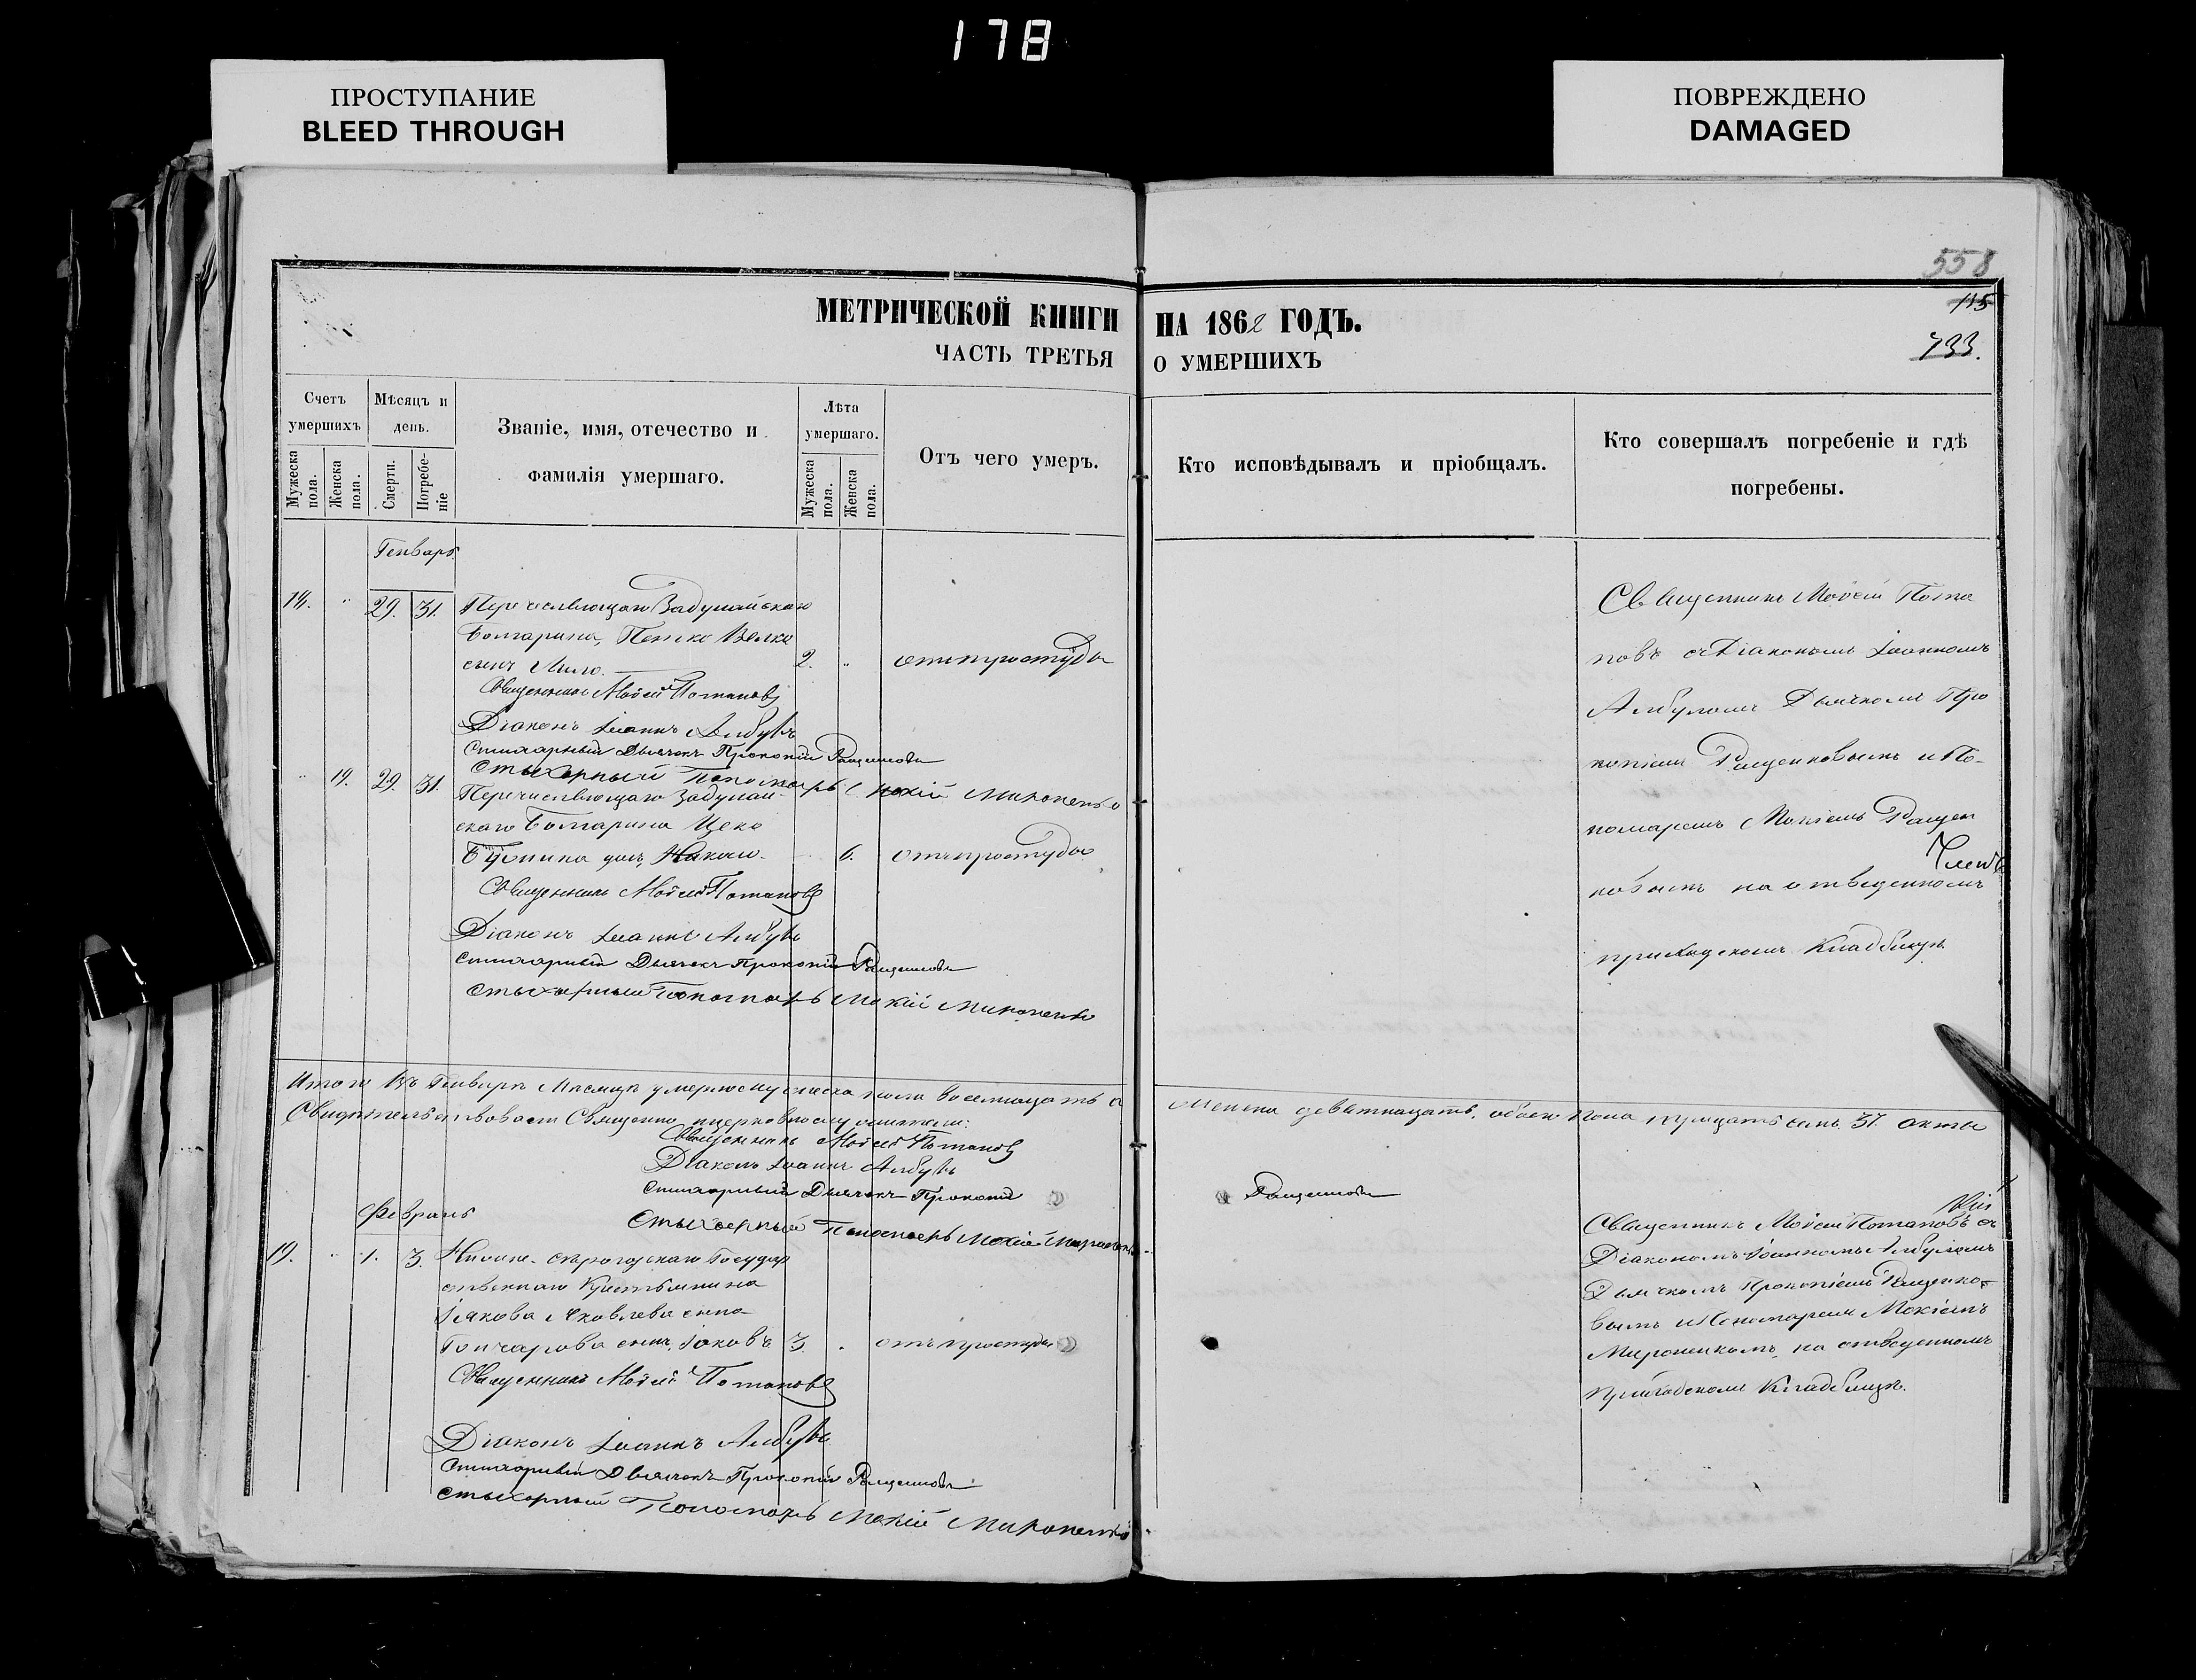 178
ПРОСТУПАНИЕ
BLEED THROUGH
ПОВРЕЖДЕНО
DAMAGED
558
115
733.
МЕТРИЧЕСКОЙ КНИГИ НА 1862 ГОДЪ.
ЧАСТЬ ТРЕТЬЯ О УМЕРШИХЪ
Счетъ умершихъ
Мужеска пола.
Женска пола.
Мѣсяцъ и день.
Смерти.
Погребеніе
Званіе, имя, отечество и фамилія умершаго.
Лѣта умершаго.
Мужеска пола.
Женска пола.
Отъ чего умеръ.
Кто исповѣдывалъ и пріобщалъ.
Кто совершалъ погребеніе и гдѣ погребены.
Генварь
18. " 29. 31. Перечисляющаго Задунайскаго
Болгарина, Петко Велко
сынъ 2. " отъ простуды
Священникъ Мойсей Потаповъ
Діаконъ Іоаннъ Албулъ
Стихарный Дьячекъ Прокопій Ращенковъ
Стыхарный Пономарь Мокій Мироненко
Священникъ Мойсей Пота
повъ съ Діакономъ Іоанномъ
Албуломъ Дьячкомъ Про
копіемъ Ращенковымъ и По-
номаремъ Мокіемъ Ращен
ковымъ на отведенномъ
приходскомъ Кладбищѣ.
" 19. 29. 31. Перечисляющаго Задунай-
скаго Болгарина Цеко
дочь 6. отъ простуды
Священникъ Мойсей Потаповъ
Діаконъ Іоаннъ Албулъ
Стихарный Дьячекъ Прокопій Ращенковъ
Стыхарный Пономарь Мокій Мироненко
Итого въ Генварѣ Мѣсяцѣ умерло мужеска пола восемнадцать а женска девятнадцать, обоего пола тридцать семь. 37. Въ
Свидѣтельствовали Священно и церковнослужители:
Священникъ Мойсей Потаповъ
Діаконъ Іоаннъ Албулъ
Стихарный Дьячекъ Прокопій Ращенковъ
Стыхарный Пономарь Мокій Мироненко
Февраль
19. " 1. 3. Государ
ственнаго Крестьянина
Іякова Яковлева сына
Гончарова сынъ, Іаковъ 3. " отъ простуды
Священникъ Мойсей Потаповъ
Діаконъ Іоаннъ Албулъ
Стихарный Дьячекъ Прокопій Ращенковъ
Стыхарный Пономарь Мокій Мироненко
Священникъ Мойсей Потаповъ съ
Діакономъ Іоанномъ Албуломъ
Дьячкомъ Прокопіемъ Ращенко-
вымъ и Пономаремъ Мокіемъ
Мироненкомъ, на отведенномъ
приходскомъ Кладбищѣ.